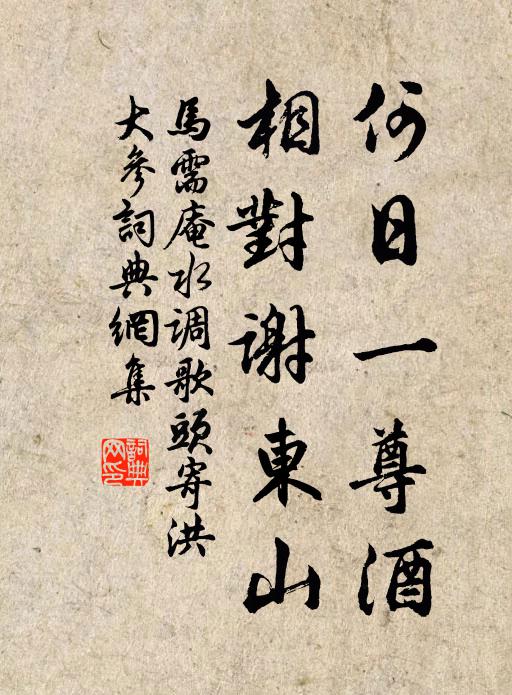 何日一尊酒
相對謝東山
馬需庵水调歌頭寄洪
大參詞典網集
詞典網印